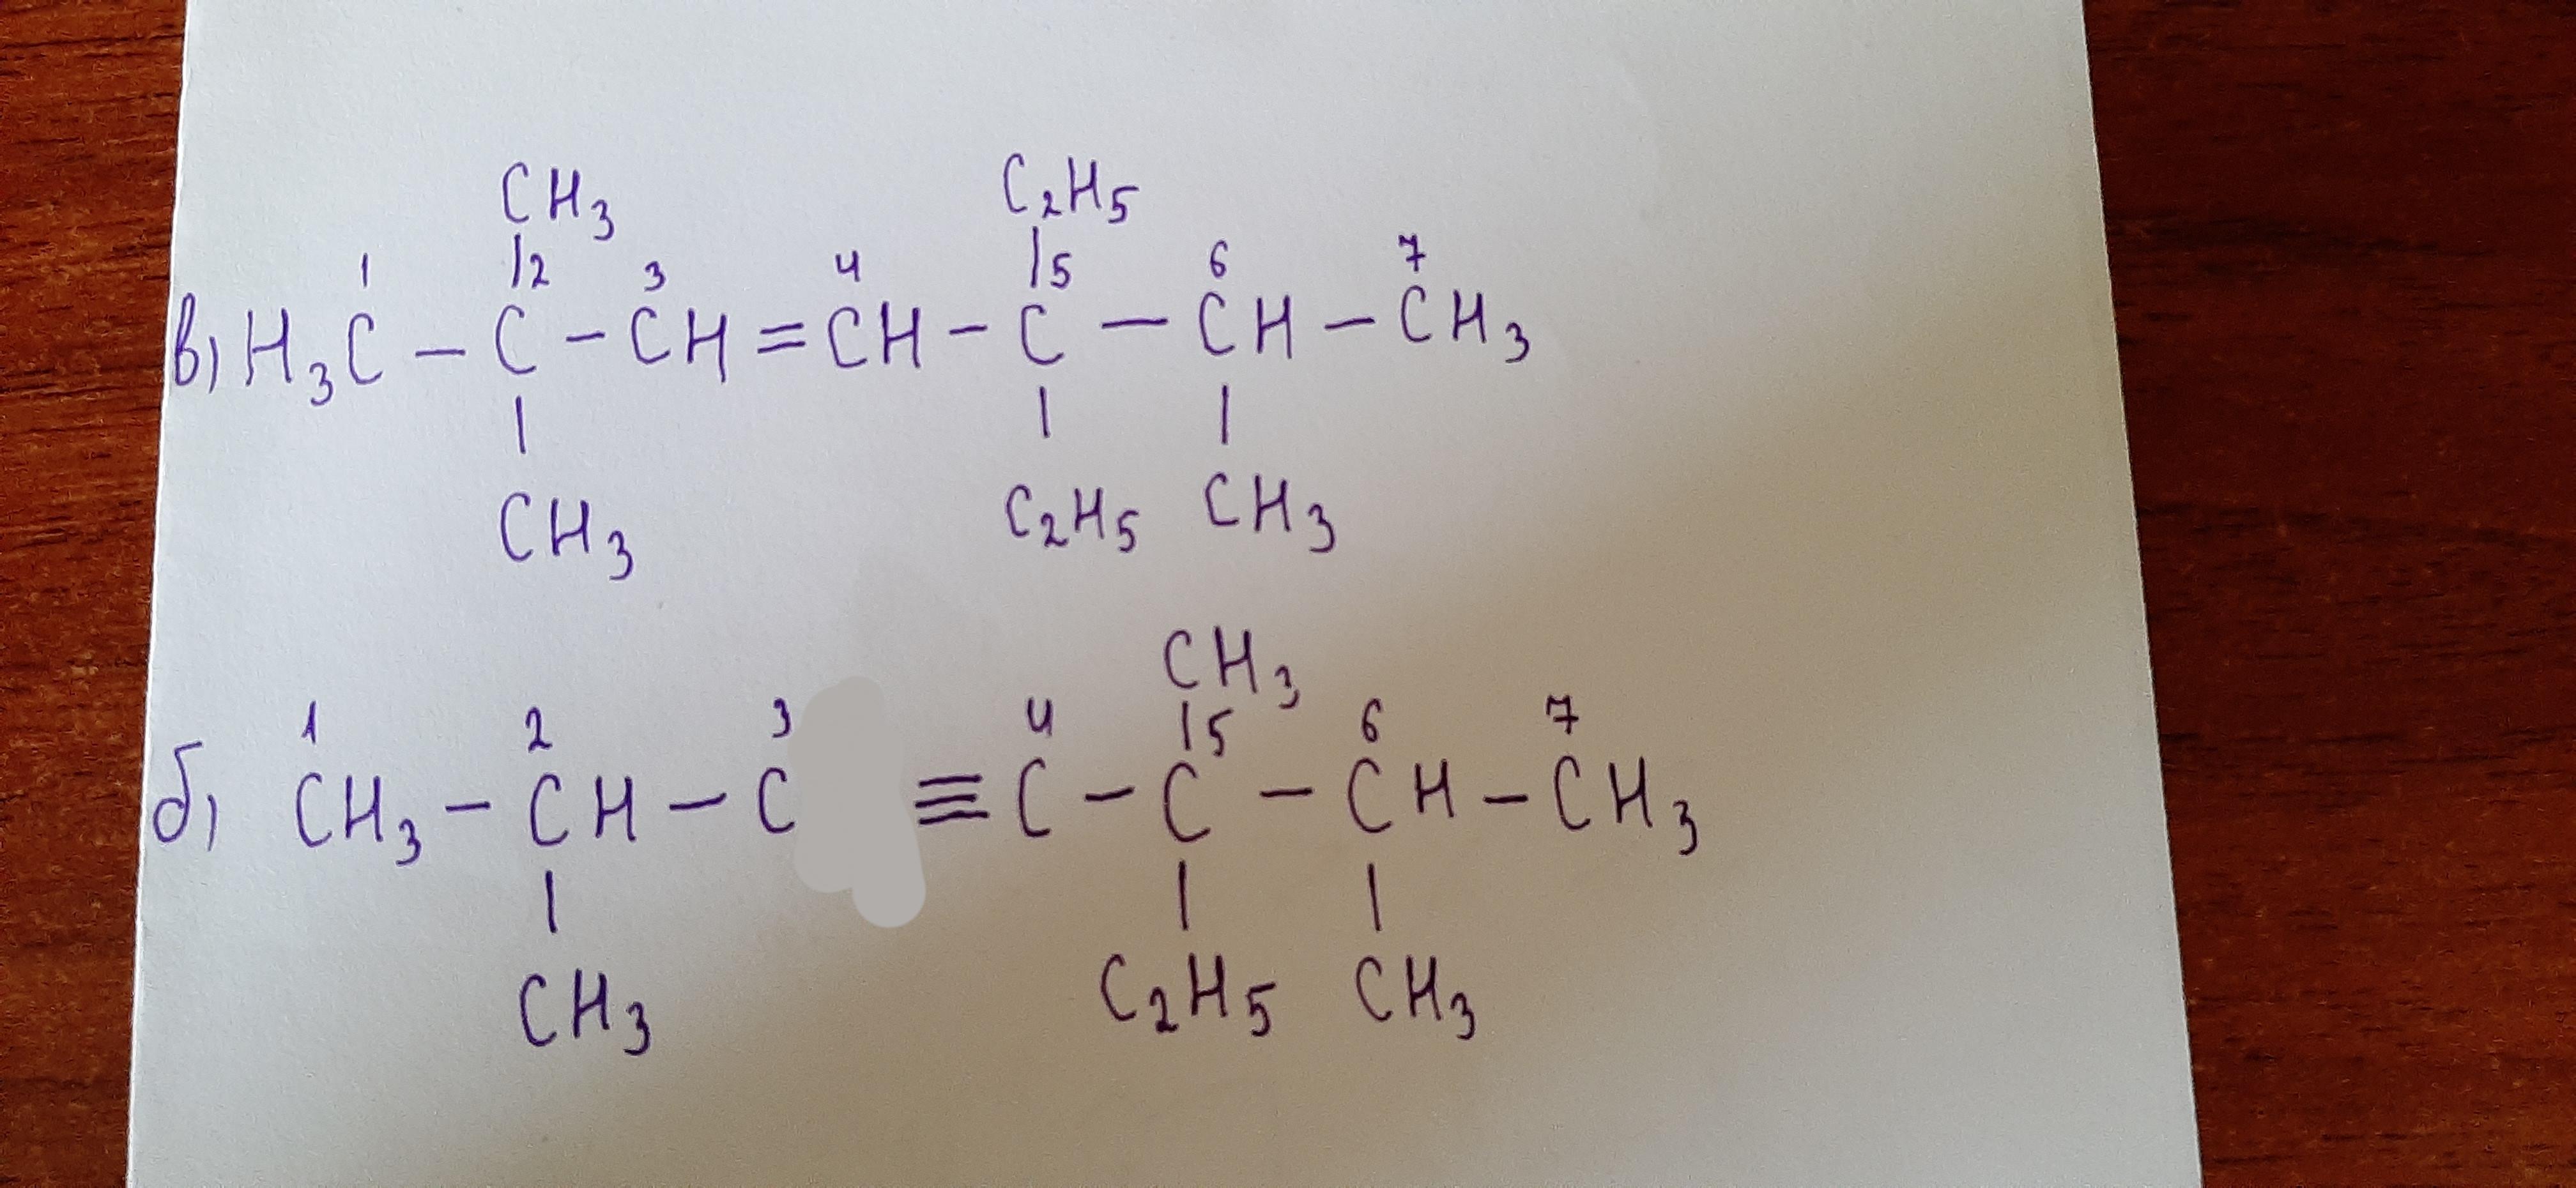 CH3 C2H5
1 |2 3 4 |5 6 7
в) H3C – C – CH = CH – C – CH – CH3
| | |
CH3 C2H5 CH3
CH3
1 2 3 4 |5 6 7
б) CH3 – CH – C ≡ C – C – CH – CH3
| | |
CH3 C2H5 CH3